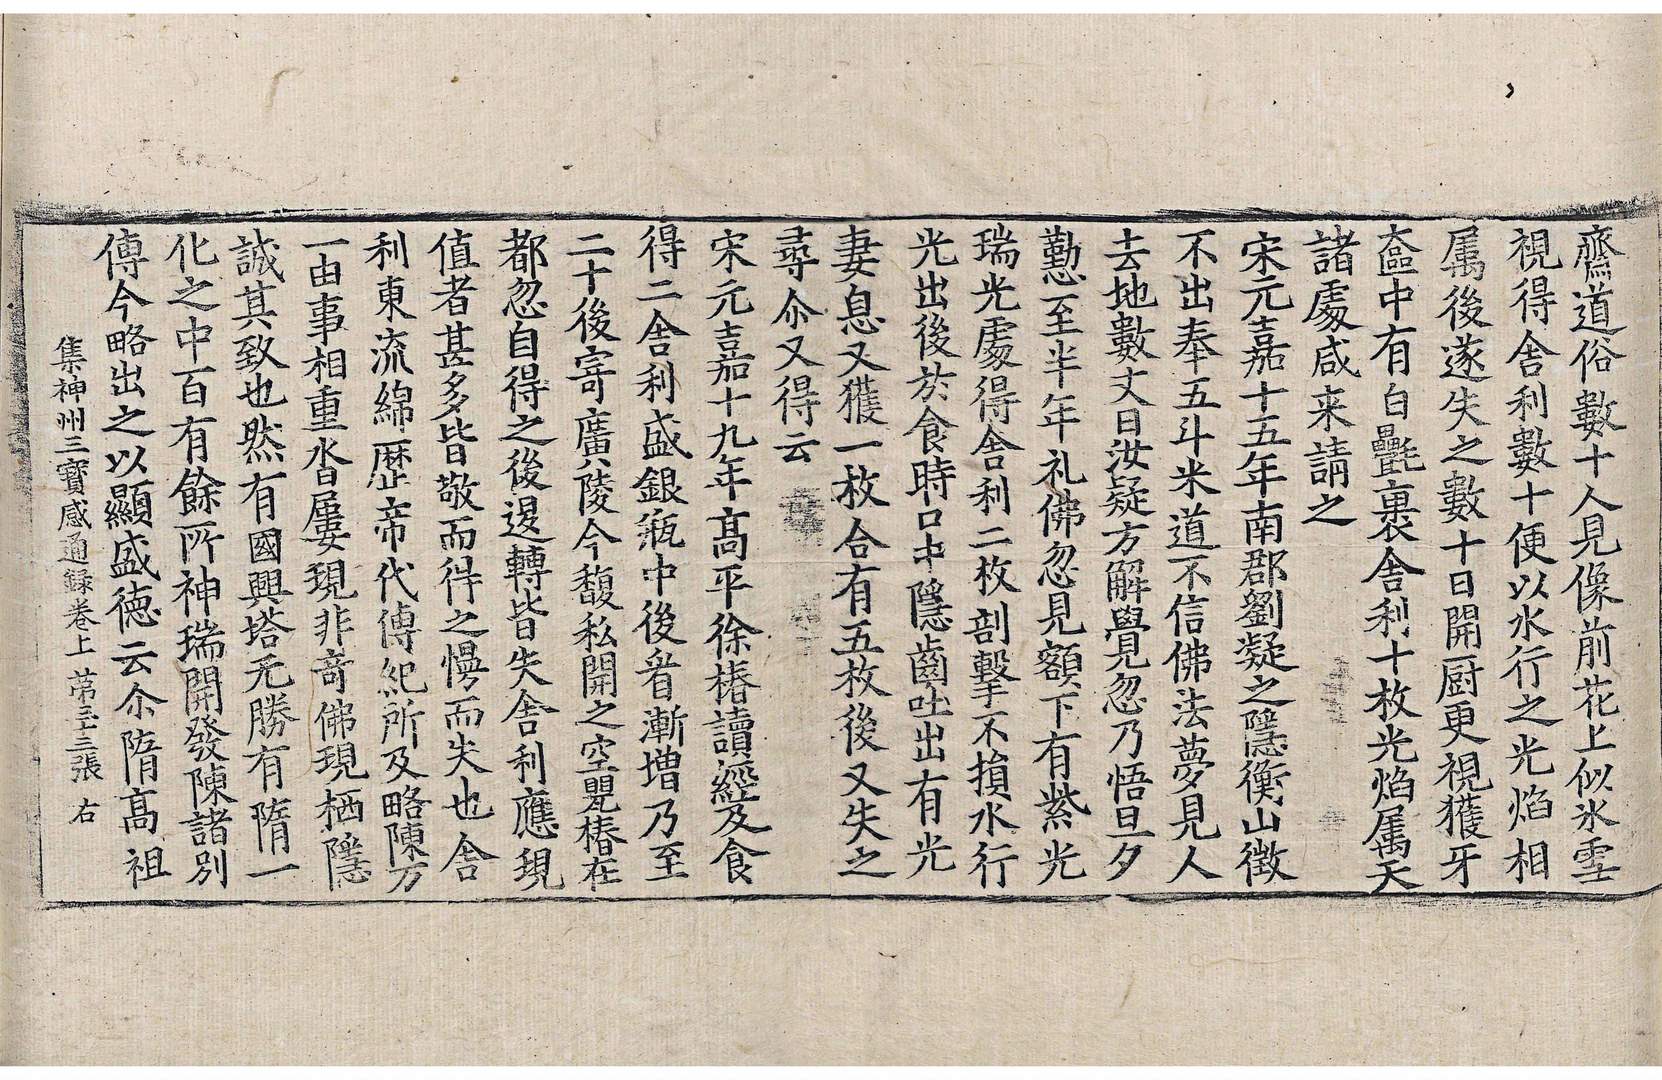 齋道俗數十人見像前花上似氷雪
視得舍利數十便以水行之光焰相
属後遂失之數十日開厨更視獲牙
奩中有白㲲裹舍利十枚光焰属天
諸處咸来請之
宋元嘉十五年南郡劉凝之隱衡山徵
不出奉五斗米道不信佛法夢見人
去地數丈曰汝疑方解覺忽乃悟旦夕
懃至半年礼佛忽見額下有紫光
瑞光處得舍利二枚剖擊不損水行
光出後於食時口中隱齒吐出有光
妻息又獲一枚合有五枚後又失之
尋尒又得云
宋元嘉十九年高平徐椿讀經及食
得二舍利盛銀瓶中後看漸增乃至
二十後寄廣陵令馥私開之空甖椿在
都忽自得之後退轉皆失舍利應現
值者甚多皆敬而得之慢而失也舍
利東流綿歴帝代傳紀所及略陳万
一由事相重沓屢現非竒佛現栖隱
誠其致也然有國興塔无勝有隋一
化之中百有餘所神瑞開發陳諸別
傳今略出之以顯盛德云尒隋高祖
集神州三寶感通録卷上 苐三十三張 右